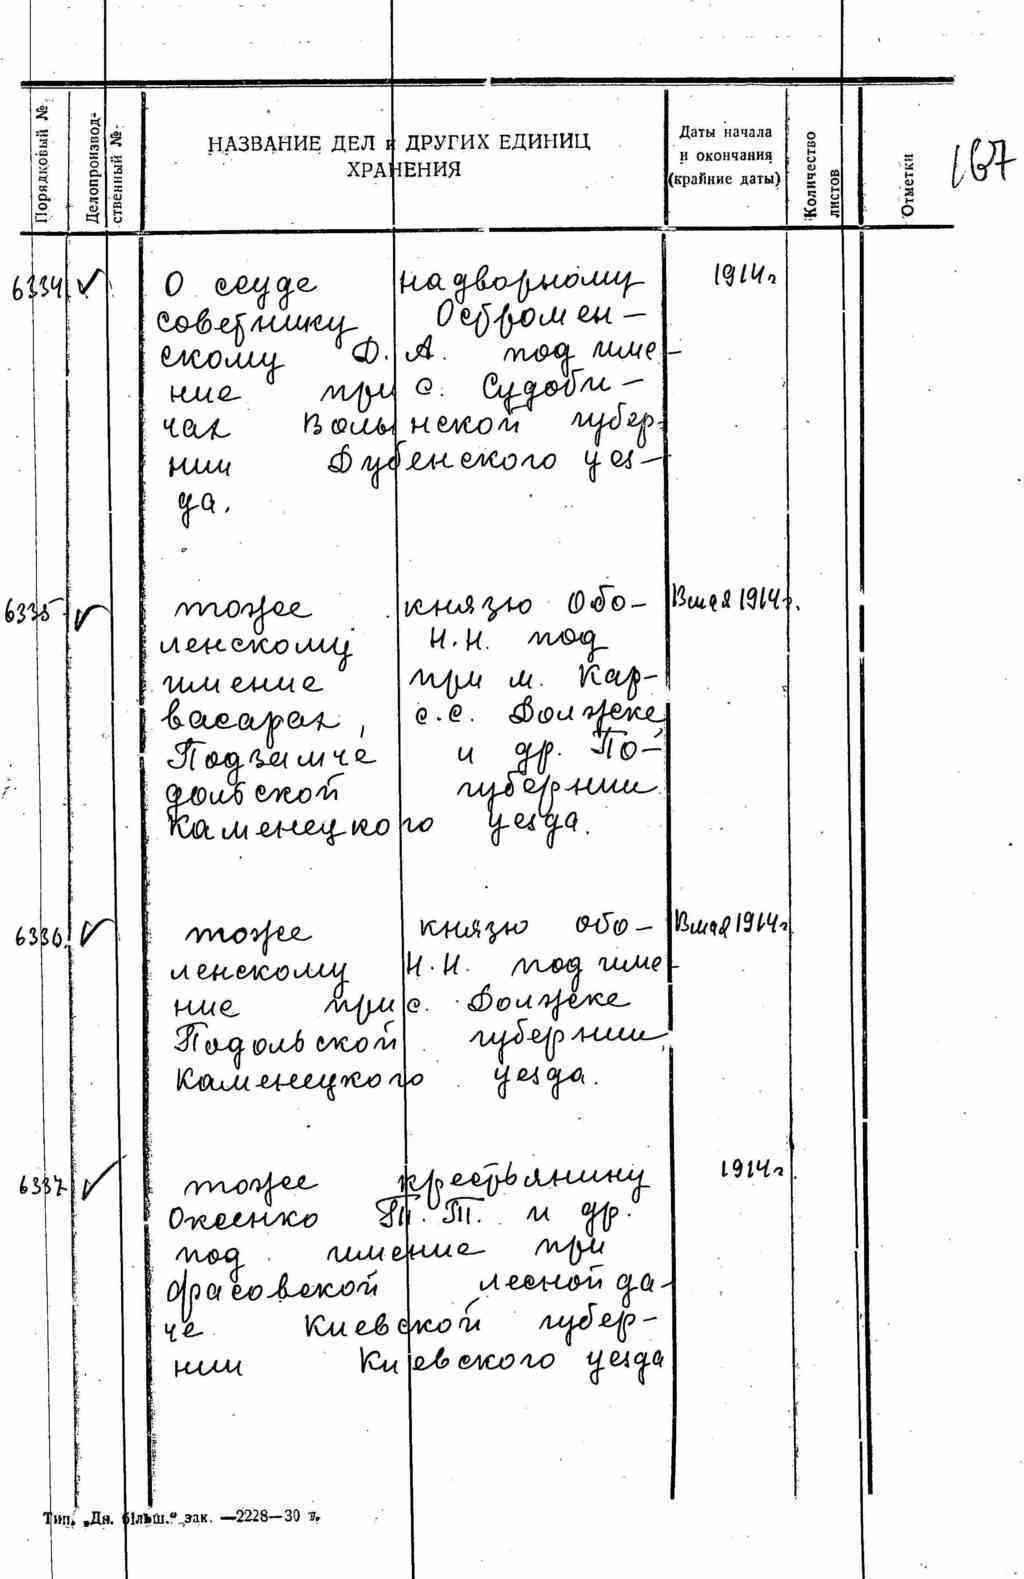 167
Порядковый №
Делопроизвод-
ственный №
НАЗВАНИЕ ДЕЛ и ДРУГИХ ЕДИНИЦ
ХРАНЕНИЯ
Даты начала
и окончания
(крайние даты)
Количество
листов
Отметки
6334 ✓ О ссуде надворному 1914г
советнику Остромен-
скому Ф. А. под име-
ние при с. Судоби-
чах Волынской губер-
нии Дубенского уез-
да.
6335 ✓ тоже князю Обо- 13 мая 1914г.
ленскому Н.Н. под
имение при м. Кар-
васарах, с.с. Должке,
Подзамче и др. По-
дольской губернии
Каменецкого уезда.
6336. ✓ тоже князю Обо- 13 мая 1914г
ленскому Н.Н. под име-
ние при с. Должке
Подольской губернии,
Каменецкого уезда.
6337 ✓ тоже крестьянину 1914г.
Оксенко Т. Т. и др.
под имение при
Фасовской лесной да-
че Киевской губер-
нии Киевского уезда
Тип. „Дн. більш.“ зак. —2228—30 т.